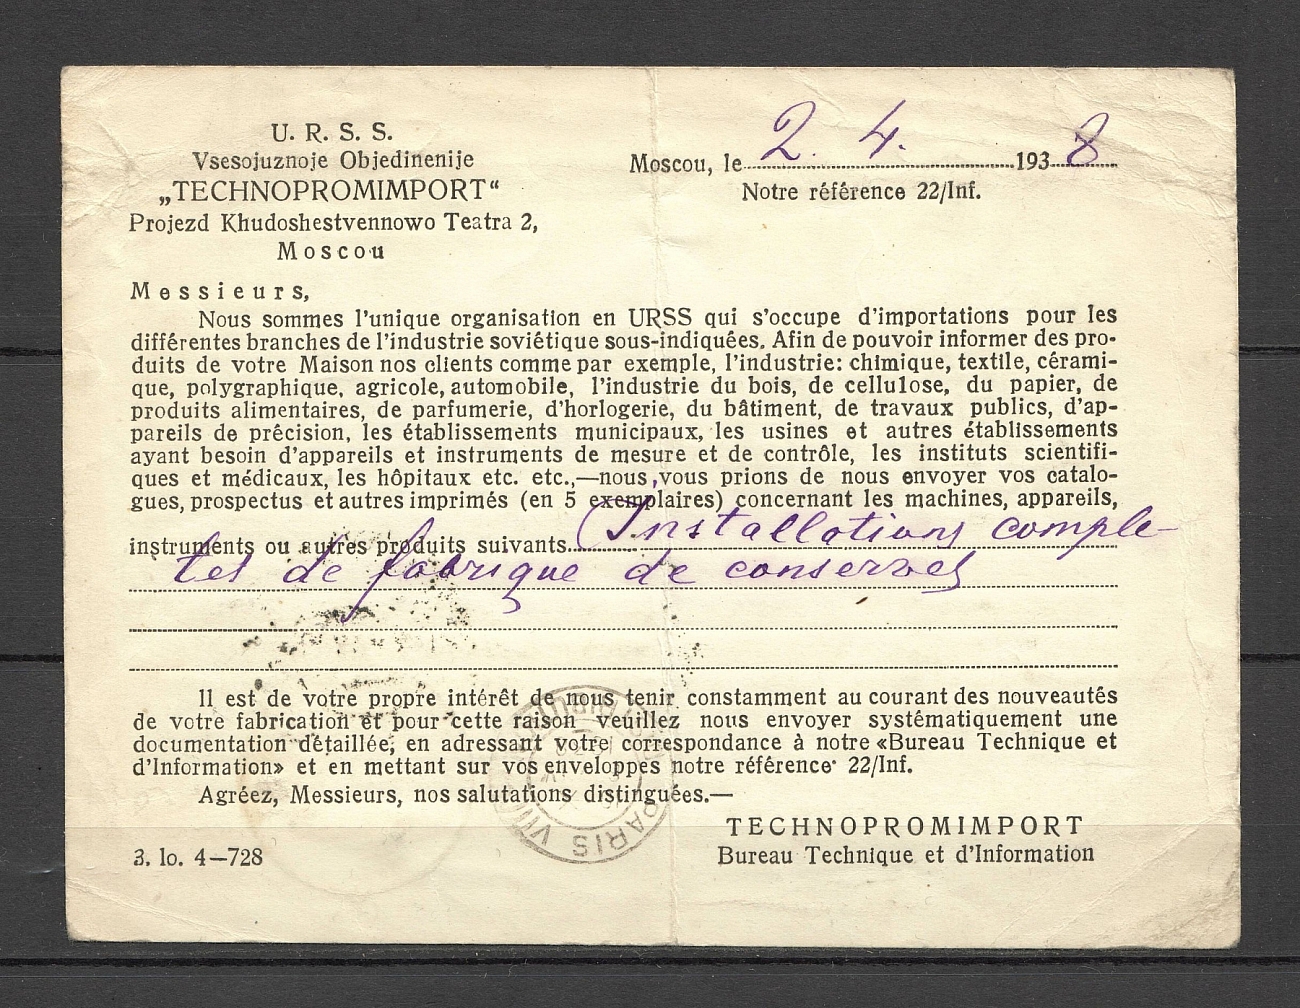 U. R. S. S.
Vsesojuznoje Objedinenije
„TECHNOPROMIMPORT“
Projezd Khudoshestvennowo Teatra 2,
Moscou
Moscou, le 2. 4. 1938
Notre référence 22/Inf.
Messieurs,
Nous sommes l'unique organisation en URSS qui s'occupe d'importations pour les
différentes branches de l'industrie soviétique sous-indiquées. Afin de pouvoir informer des pro-
duits de votre Maison nos clients comme par exemple, l'industrie: chimique, textile, cérami-
que, polygraphique, agricole, automobile, l'industrie du bois, de cellulose, du papier, de
produits alimentaires, de parfumerie, d'horlogerie, du bâtiment, de travaux publics, d'ap-
pareils de prêcision, les établissements municipaux, les usines et autres établissements
ayant besoin d'appareils et instruments de mesure et de contrôle, les instituts scientifi-
ques et médicaux, les hôpitaux etc. etc.,—nous vous prions de nous envoyer vos catalo-
gues, prospectus et autres imprimés (en 5 exemplaires) concernant les machines, appareils,
instruments ou autres produits suivants Installations comple-
tes de fabrique de conserves
Il est de votre propre intérêt de nous tenir constamment au courant des nouveautés
de votre fabrication et pour cette raison veuillez nous envoyer systématiquement une
documentation détaillée, en adressant votre correspondance à notre «Bureau Technique et
d'Information» et en mettant sur vos enveloppes notre référence 22/Inf.
Agréez, Messieurs, nos salutations distinguées.—
TECHNOPROMIMPORT
Bureau Technique et d'Information
3. lo. 4—728
PARIS VIII